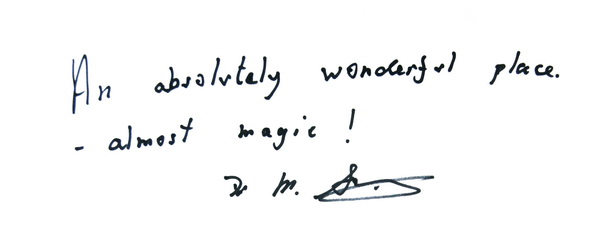 An absolutely wonderful place.
- almost magic !
Dr M.